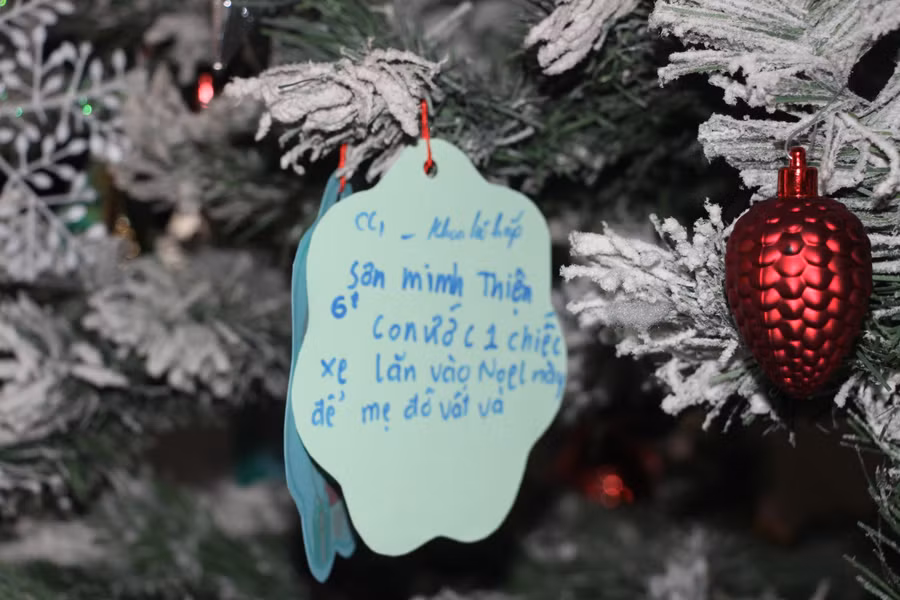 CC1 - Khoa hô hấp
Sơn minh Thiện
6t
Con ước 1 chiếc
xe lăn vào Noel này
để mẹ đỡ vất vả